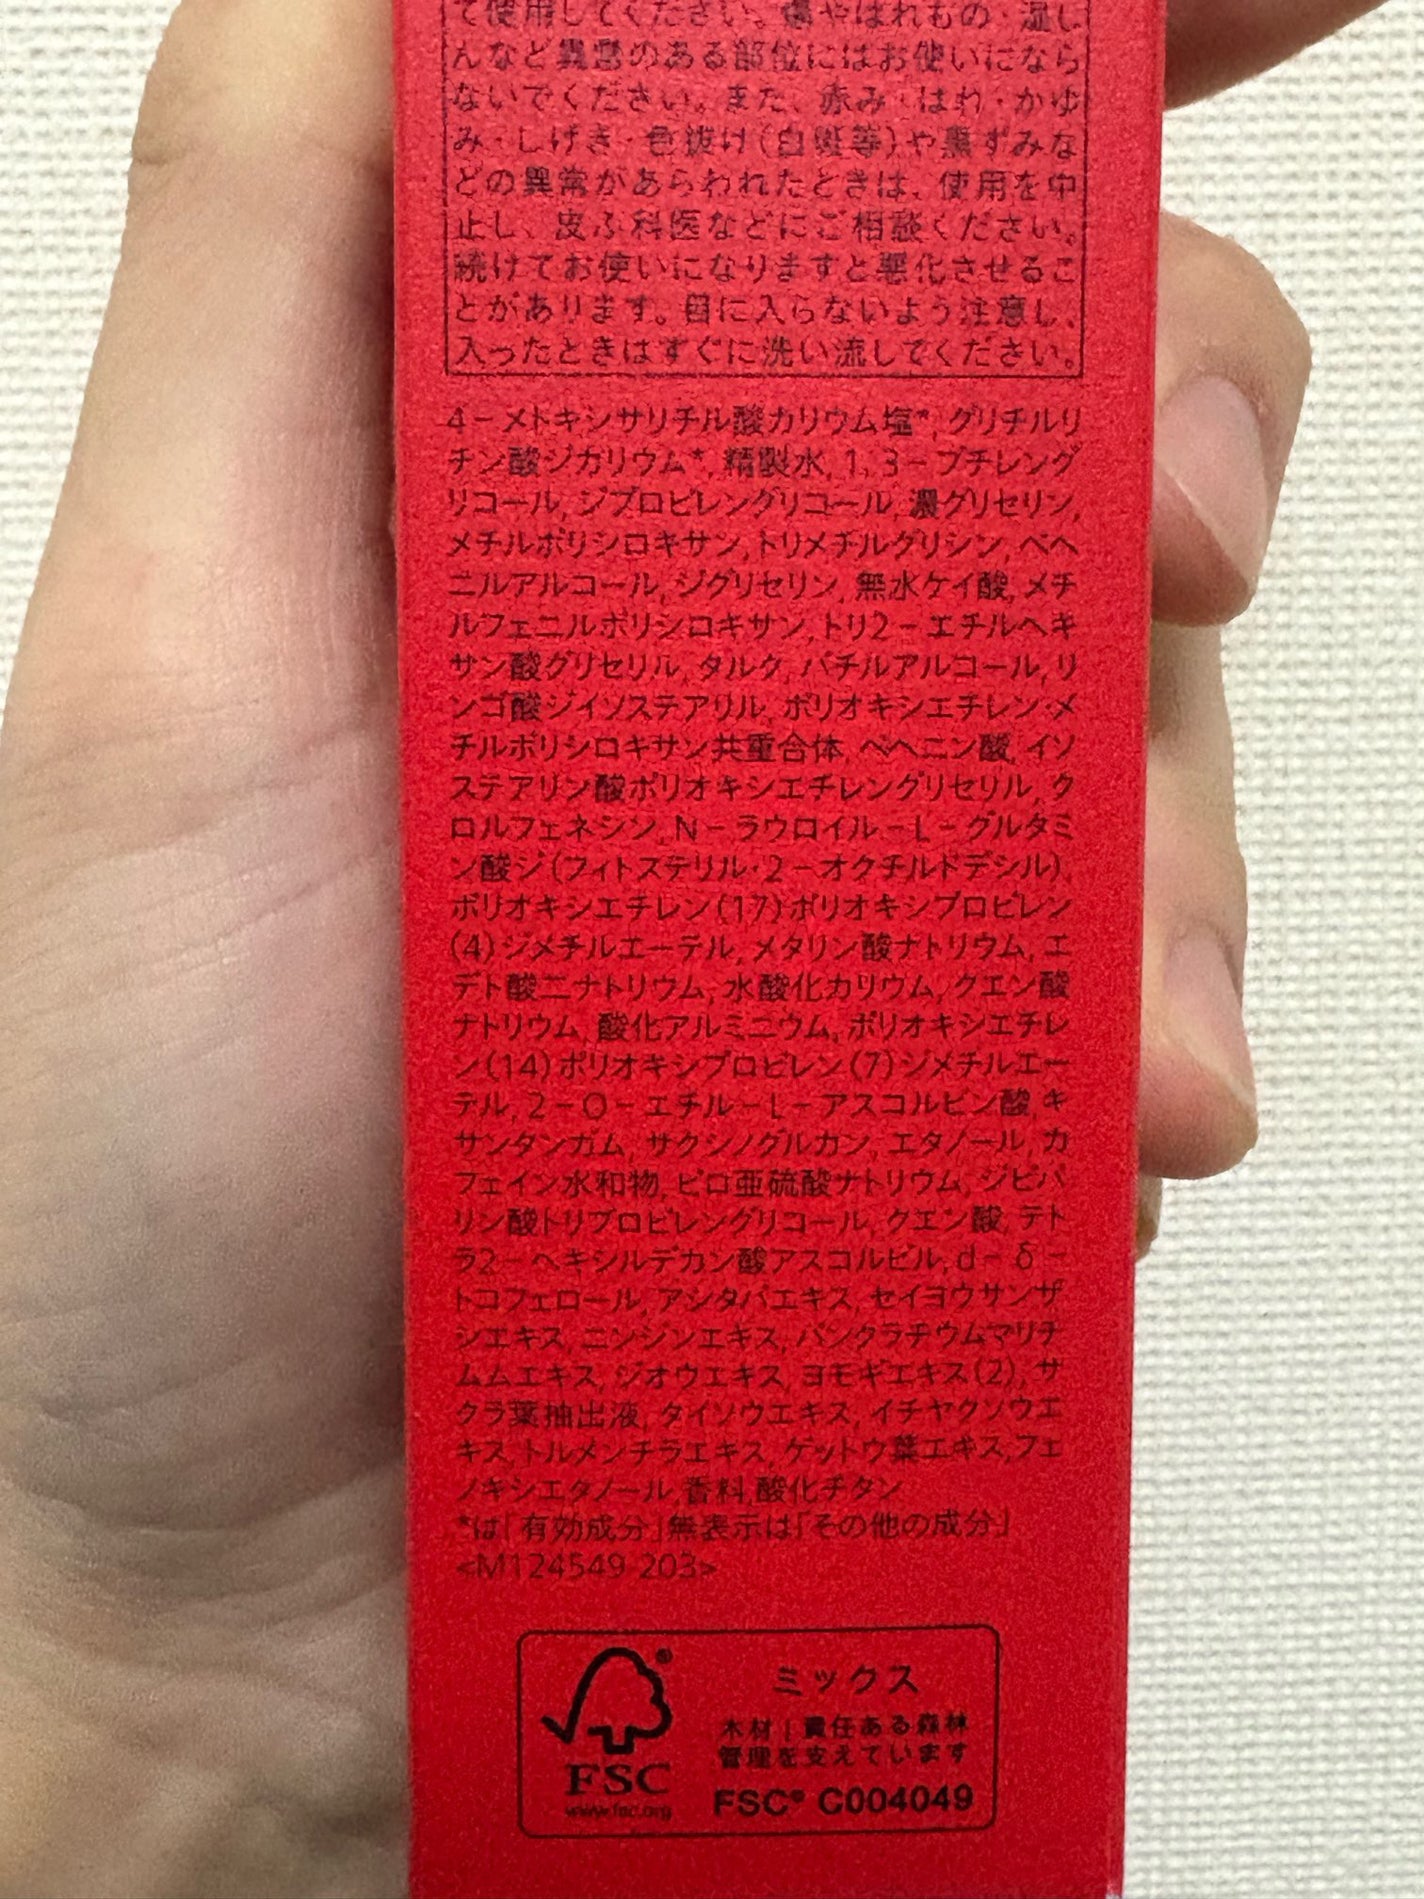 て使用してください。傷やはれもの・湿し
んなど異常のある部位にはお使いになら
ないでください。また、赤み・はれ・かゆ
み・しげき・色抜け(白斑等)や黒ずみな
どの異常があらわれたときは、使用を中
止し、皮ふ科医などにご相談ください。
続けてお使いになりますと悪化させるこ
とがあります。目に入らないよう注意し、
入ったときはすぐに洗い流してください。
4-メトキシサリチル酸カリウム塩*,グリチルリ
チン酸ジカリウム*,精製水,1,3-ブチレング
リコール,ジプロピレングリコール,濃グリセリン,
メチルポリシロキサン,トリメチルグリシン,ベヘ
ニルアルコール,ジグリセリン,無水ケイ酸,メチ
ルフェニルポリシロキサン,トリ2-エチルヘキ
サン酸グリセリル,タルク,バチルアルコール,リ
ンゴ酸ジイソステアリル,ポリオキシエチレン・メ
チルポリシロキサン共重合体,ベヘニン酸,イソ
ステアリン酸ポリオキシエチレングリセリル,ク
ロルフェネシン,N-ラウロイル-L-グルタミ
ン酸ジ(フィトステリル・2-オクチルドデシル),
ポリオキシエチレン(17)ポリオキシプロピレン
(4)ジメチルエーテル,メタリン酸ナトリウム,エ
デト酸二ナトリウム,水酸化カリウム,クエン酸
ナトリウム,酸化アルミニウム,ポリオキシエチレ
ン(14)ポリオキシプロピレン(7)ジメチルエー
テル,2-O-エチル-L-アスコルビン酸,キ
サンタンガム,サクシノグルカン,エタノール,カ
フェイン水和物,ピロ亜硫酸ナトリウム,ジピバ
リン酸トリプロピレングリコール,クエン酸,テト
ラ2-ヘキシルデカン酸アスコルビル,d-δ-
トコフェロール,アシタバエキス,セイヨウサンザ
シエキス,ニンジンエキス,パンクラチウムマリチ
ムムエキス,ジオウエキス,ヨモギエキス(2),サ
クラ葉抽出液,タイソウエキス,イチヤクソウエ
キス,トルメンチラエキス,ゲットウ葉エキス,フェ
ノキシエタノール,香料,酸化チタン
*は「有効成分」無表示は「その他の成分」
<M124549-203>
ミックス
木材|責任ある森林
管理を支えています
FSC® C004049
FSC
www.fsc.org